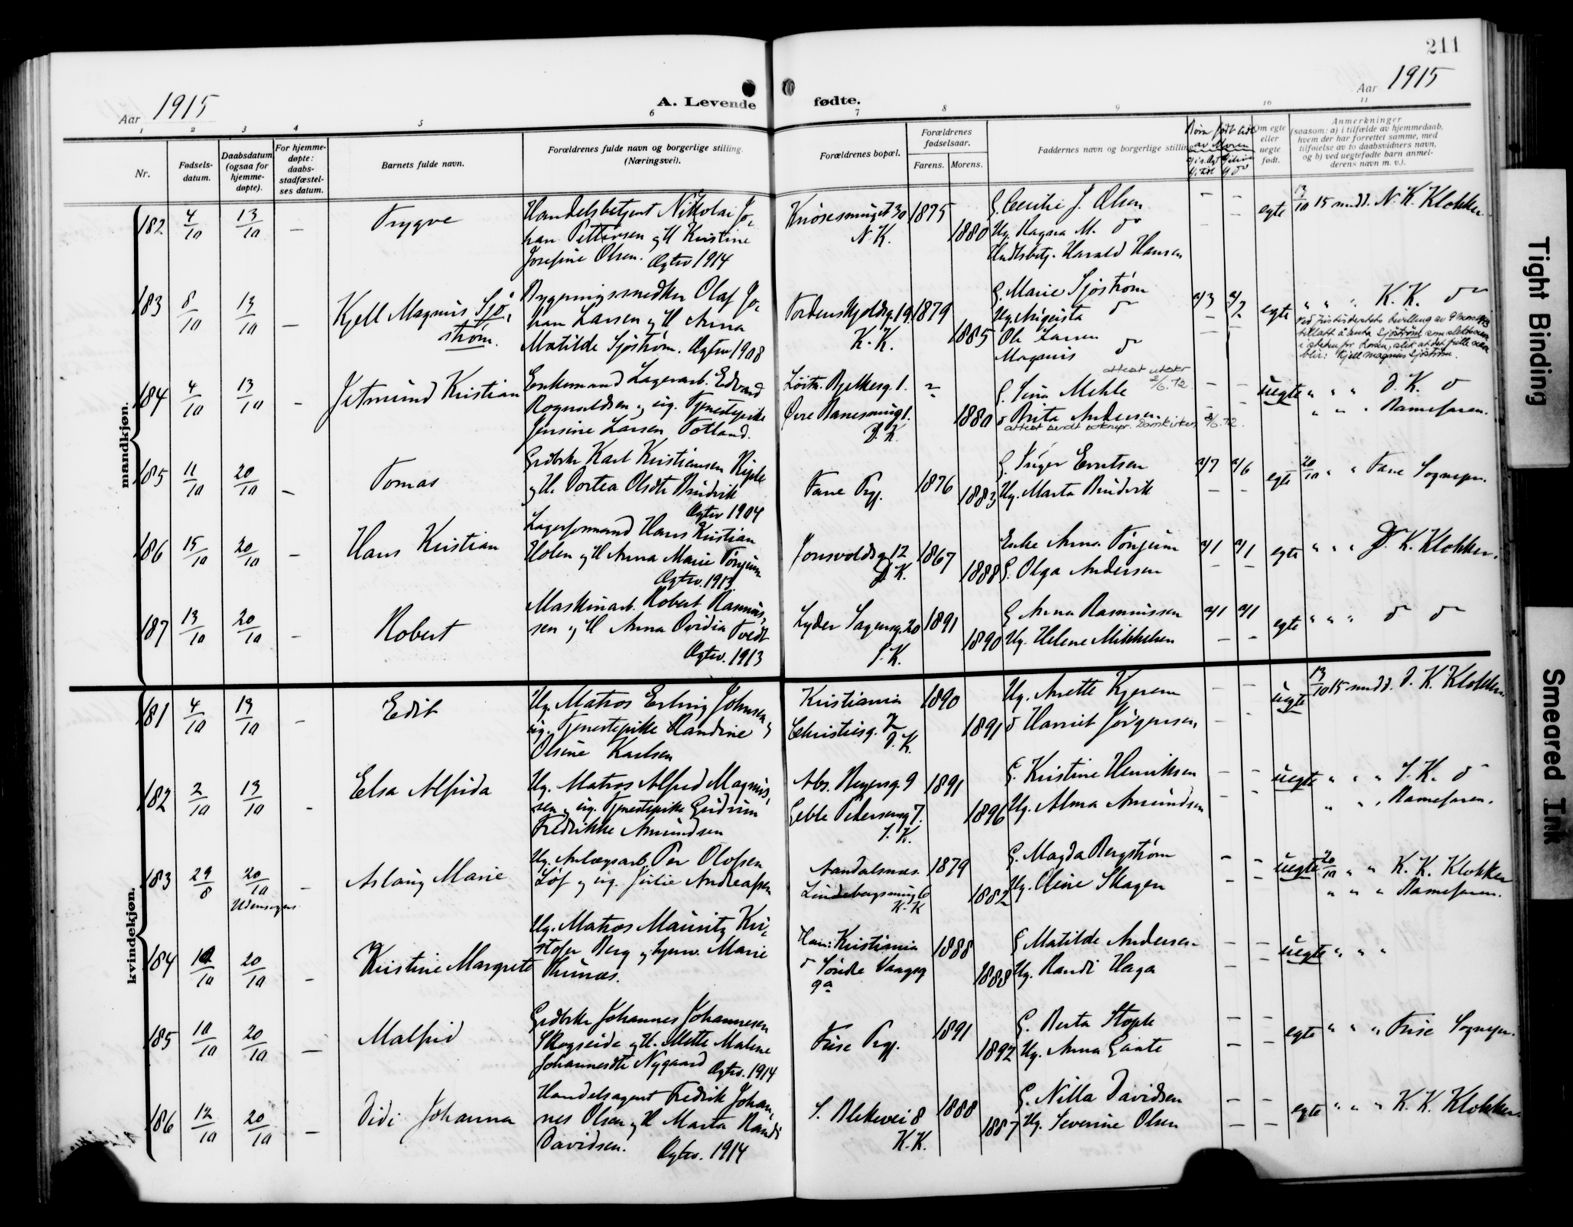 211
Aar 1915
A. Levende fødte.
Aar 1915
1 2 3 4 5 6 7 8 9 10 11
Nr.
Fødsels-
datum.
Daabsdatum
(ogsaa for
hjemme-
døpte).
For hjemme-
døpte:
daabs-
stadfæstel-
ses datum.
Barnets fulde navn.
Forældrenes fulde navn og borgerlige stilling.
(Næringsvei).
Forældrenes bopæl.
Forældrenes
fødselsaar.
Farens. Morens.
Faddernes navn og borgerlige stilling.
Om egte
eller
uegte
født.
Anmerkninger
(saasom: a) i tilfælde av hjemmedaab,
hvem der har forrettet samme, med
tilføielse av to daabsvidners navn,
og b) ved uegtefødte barn anmel-
derens navn m. v.).
mandkjøn.
182 4/10 13/10 – Trygve
Handelsbetjent Nikolai Jo-
han Pettersen og H Kristine
Josefine Olsen. Ægtev 1914
Knøsesmuget 30
N. K.
1875 1880
G. Cecilie J. Olsen
Ug. Dagna M. do
Hndlsbetj. Harald Hansen
– –
egte
13/10 15 mdd. N. K. Klokker
183 8/10 13/10 – Kjell Magnus Sjö-
strøm.
Bygningssnedker Olaf Jo-
han Larsen og H Anna
Matilde Sjøstrøm. Ægtev 1908
Tordenskjoldsg. 19
K. K.
1879 1885
G. Marie Sjøstrøm
Ug. Augusta do
Ole Larsen
Magnus do
egte
" " " K. K. do
Kjell Magnus Sjöström.
184 4/10 13/10 – Jetmund Kristian
Enkemand Lagerarb. Edvard
Rognaldsen og ug. Tjenestepike
Jensine Larsen Totland.
D. K.
1880
G. Sina Mehle
do Brita Andersen
– –
uegte
" " " D. K. do
" " " Barnefaren.
185 11/10 20/10 – Tomas
Grdbrkr Karl Kristiansen Riple
og H. Dortea Olsdtr Bindvik
Ægtev 1904
Fane Prgj.
1876 1883
G. Inger Erntsen
Ug. Marta Bindvik
egte
20/10 " " Fane Sognepr.
186 15/10 20/10 – Hans Kristian
Lagerformand Hans Kristian
Holen og H Anna Marie Tönjum
Ægtev. 1913
Jonsvoldsg. 12
D. K.
1867 1888
Enke Anna Tönjum
G. Olga Andersen
egte
" " " D. K. Klokker.
187 13/10 20/10 – Robert
Maskinarb. Robert Rasmus-
sen og H Anna Ovidia Tvedt
Ægtev. 1913
Lyder Sagensg. 20
J. K.
1891 1890
G. Anna Rasmussen
Ug. Helene Mikkelsen
egte
" " " do do
kvindekjøn.
181 4/10 13/10 – Edit
Ug. Matros Erling Johnsen og
ug. Tjenestepike Randine
Olsine Karlsen
Kristiania
Christiesg. 2
J. K.
1890 1891
Ug. Anette Kjerem
do Harriet Jørgensen
– –
uegte
13/10 15 mdd. J. K. Klokker
182 2/10 13/10 – Elsa Alfrida
Ug. Matros Alfred Magnus-
sen og ug. Tjenestepike Gudrun
Fredrikke Amundsen
Abs. Beyersg. 9
Geble Pedersensg 7.
J. K.
1891 1896
G. Kristine Henriksen
Ug. Alma Amundsen
– –
uegte
" " " J. K. do
" " " Barnefaren.
183 29/8 20/10 – Aslaug Marie
Udensogns
Ug. Anlægsarb. Per Olofsen
Löf og ug. Julie Andreassen
Aandalsnæs.
Lindebergsmug 6
K. K
1879 1882
G. Magda Bergstrøm
Ug. Oline Skagen
– –
uegte
20/10 " " K. K. Klokker
" " " Barnefaren.
184 12/10 20/10 – Kristine Margrete
Ug. Matros Mauritz Kri-
stofer Berg og hjemv. Marie
Thunæs.
Ham: Kristiania
9a
1888 1888
G Matilde Andersen
Ug. Randi Haga
– –
uegte
" " "
185 10/10 20/10 – Malfrid
Grdbrkr Johannes Johannesen
Skogseide og H. Mette Malene
Johannesdtr Nygaard Ægtev. 1914
Fuse Prgj.
1891 1892
G. Berta Stople
Ug. Anna Gåute
– –
egte
" " " Fuse Sognepr.
186 12/10 20/10 – Didi Johanna
Handelsagent Fredrik Johan-
nes Olsen og H Marta Randi
Davidsen. Ægtev. 1914
S. Blekevei 8
K. K.
1888 1887
G. Nilla Davidsen
Ug. Severine Olsen
– –
egte
" " " K. K. Klokker
Tight Binding
Smeared Ink